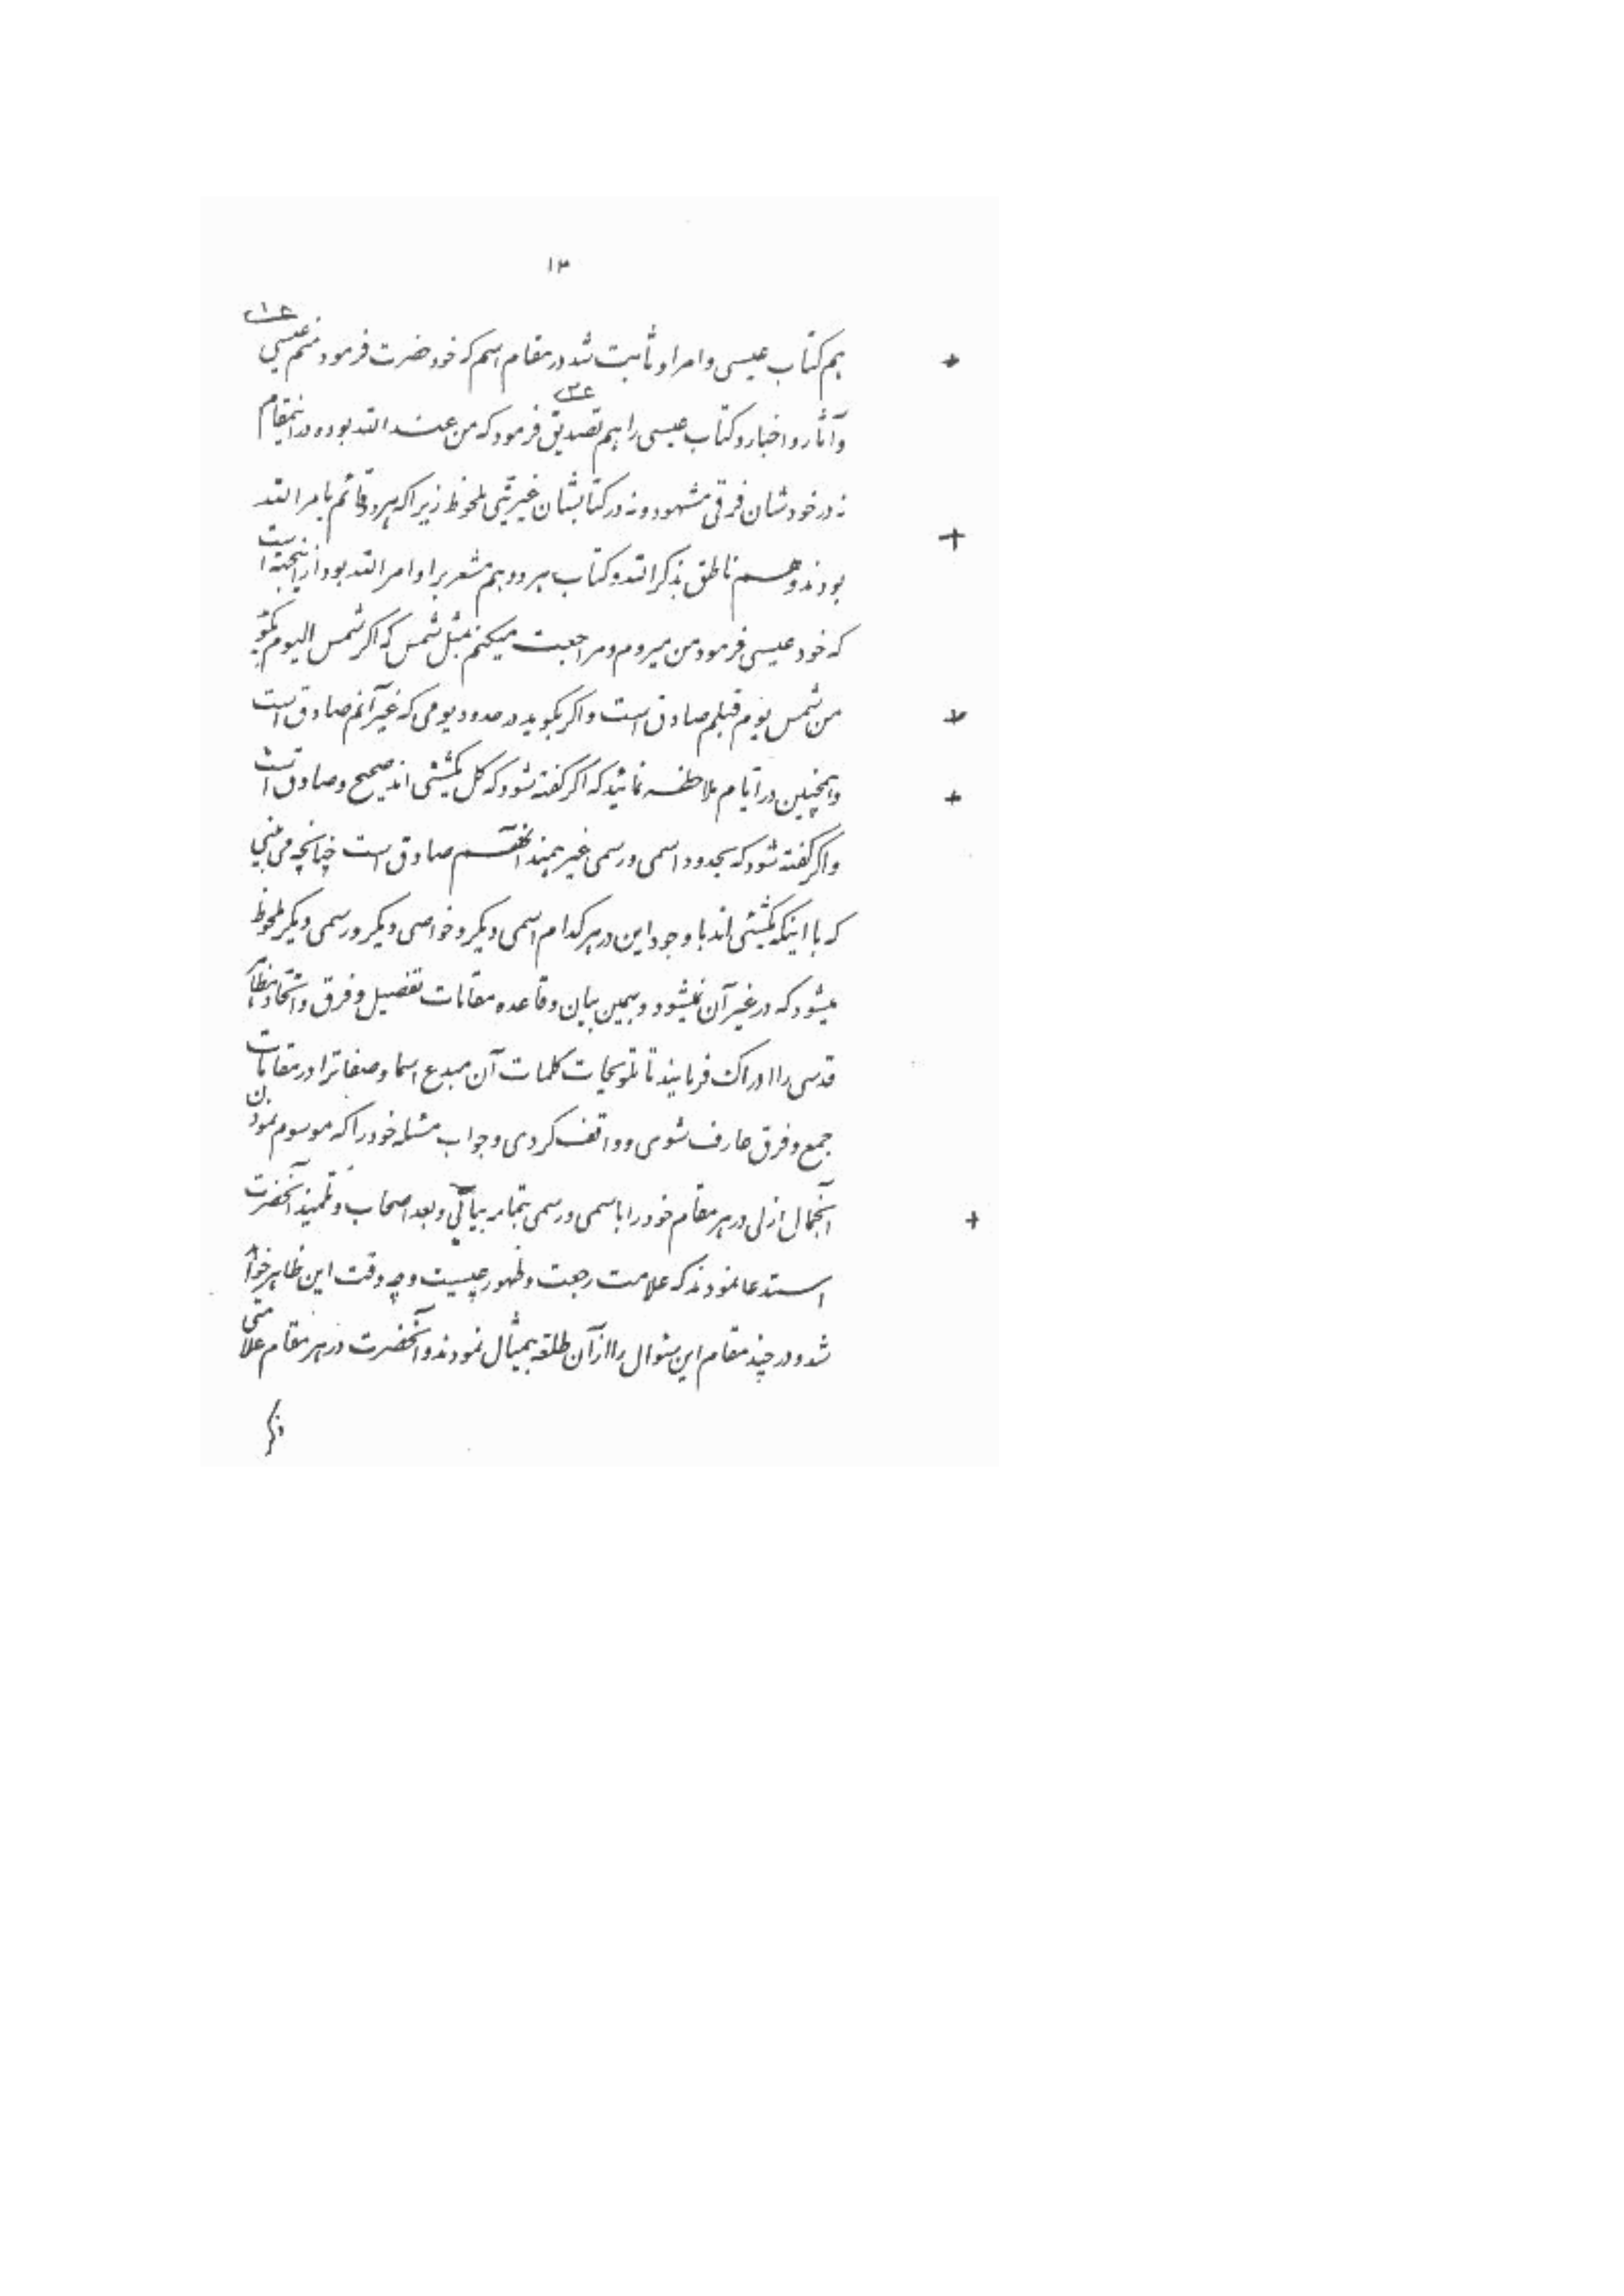 ١٣
هم کتاب عیسی و امر او ثابت شد در مقام اسم که خود حضرت فرمود منم عیسی
و آثار و اخبار و کتاب عیسی را هم تصدیق فرمود که من عند الله بوده در اینمقام
نه در خودشان فرقی مشهود و نه در کتابشان غیریتی ملحوظ زیرا که هر دو قائم بامر الله
بودند و هم ناطق بذکر الله و کتاب هر دو هم مشعر بر اوامر الله بود از اینجهة است
که خود عیسی فرمود من میروم و مراجعت میکنم بمثل شمس که اگر شمس الیوم بگوید
من شمس یوم قبلم صادق است و اگر بگوید در حدود یومی که غیر آنم صادق است
و همچنین در ایام ملاحظه نمائید که اگر گفته شود که کل یکشیئی اند صحیح و صادق است
و اگر گفته شود که بحدود اسمی و رسمی غیر همند انهم صادق است چنانچه می بینی
که با اینکه یکشیئی اند با وجود این در هر کدام اسمی دیگر و خواصی دیگر و رسمی دیگر ملحوظ
میشود که در غیر آن نمیشود و بهمین بیان و قاعده مقامات تفصیل و فرق و اتحاد مظاهر
قدسی را ادراک فرمایند تا تلویحات کلمات آن مبدع اسما و صفات را در مقامات
جمع و فرق عارف شوی و واقف گردی و جواب مسئله خود را که موسوم نمودن
آنجمال ازلی در هر مقام خود را باسمی و رسمی بتمامه بیابی و بعد اصحاب و تلمیذ آنحضرت
استدعا نمودند که علامت رجعت و ظهور چیست و چه وقت این ظاهر خواهد
شد و در چند مقام این سئوال را از آن طلعة بیمثال نمودند و آنحضرت در هر مقام علامتی
ذکر